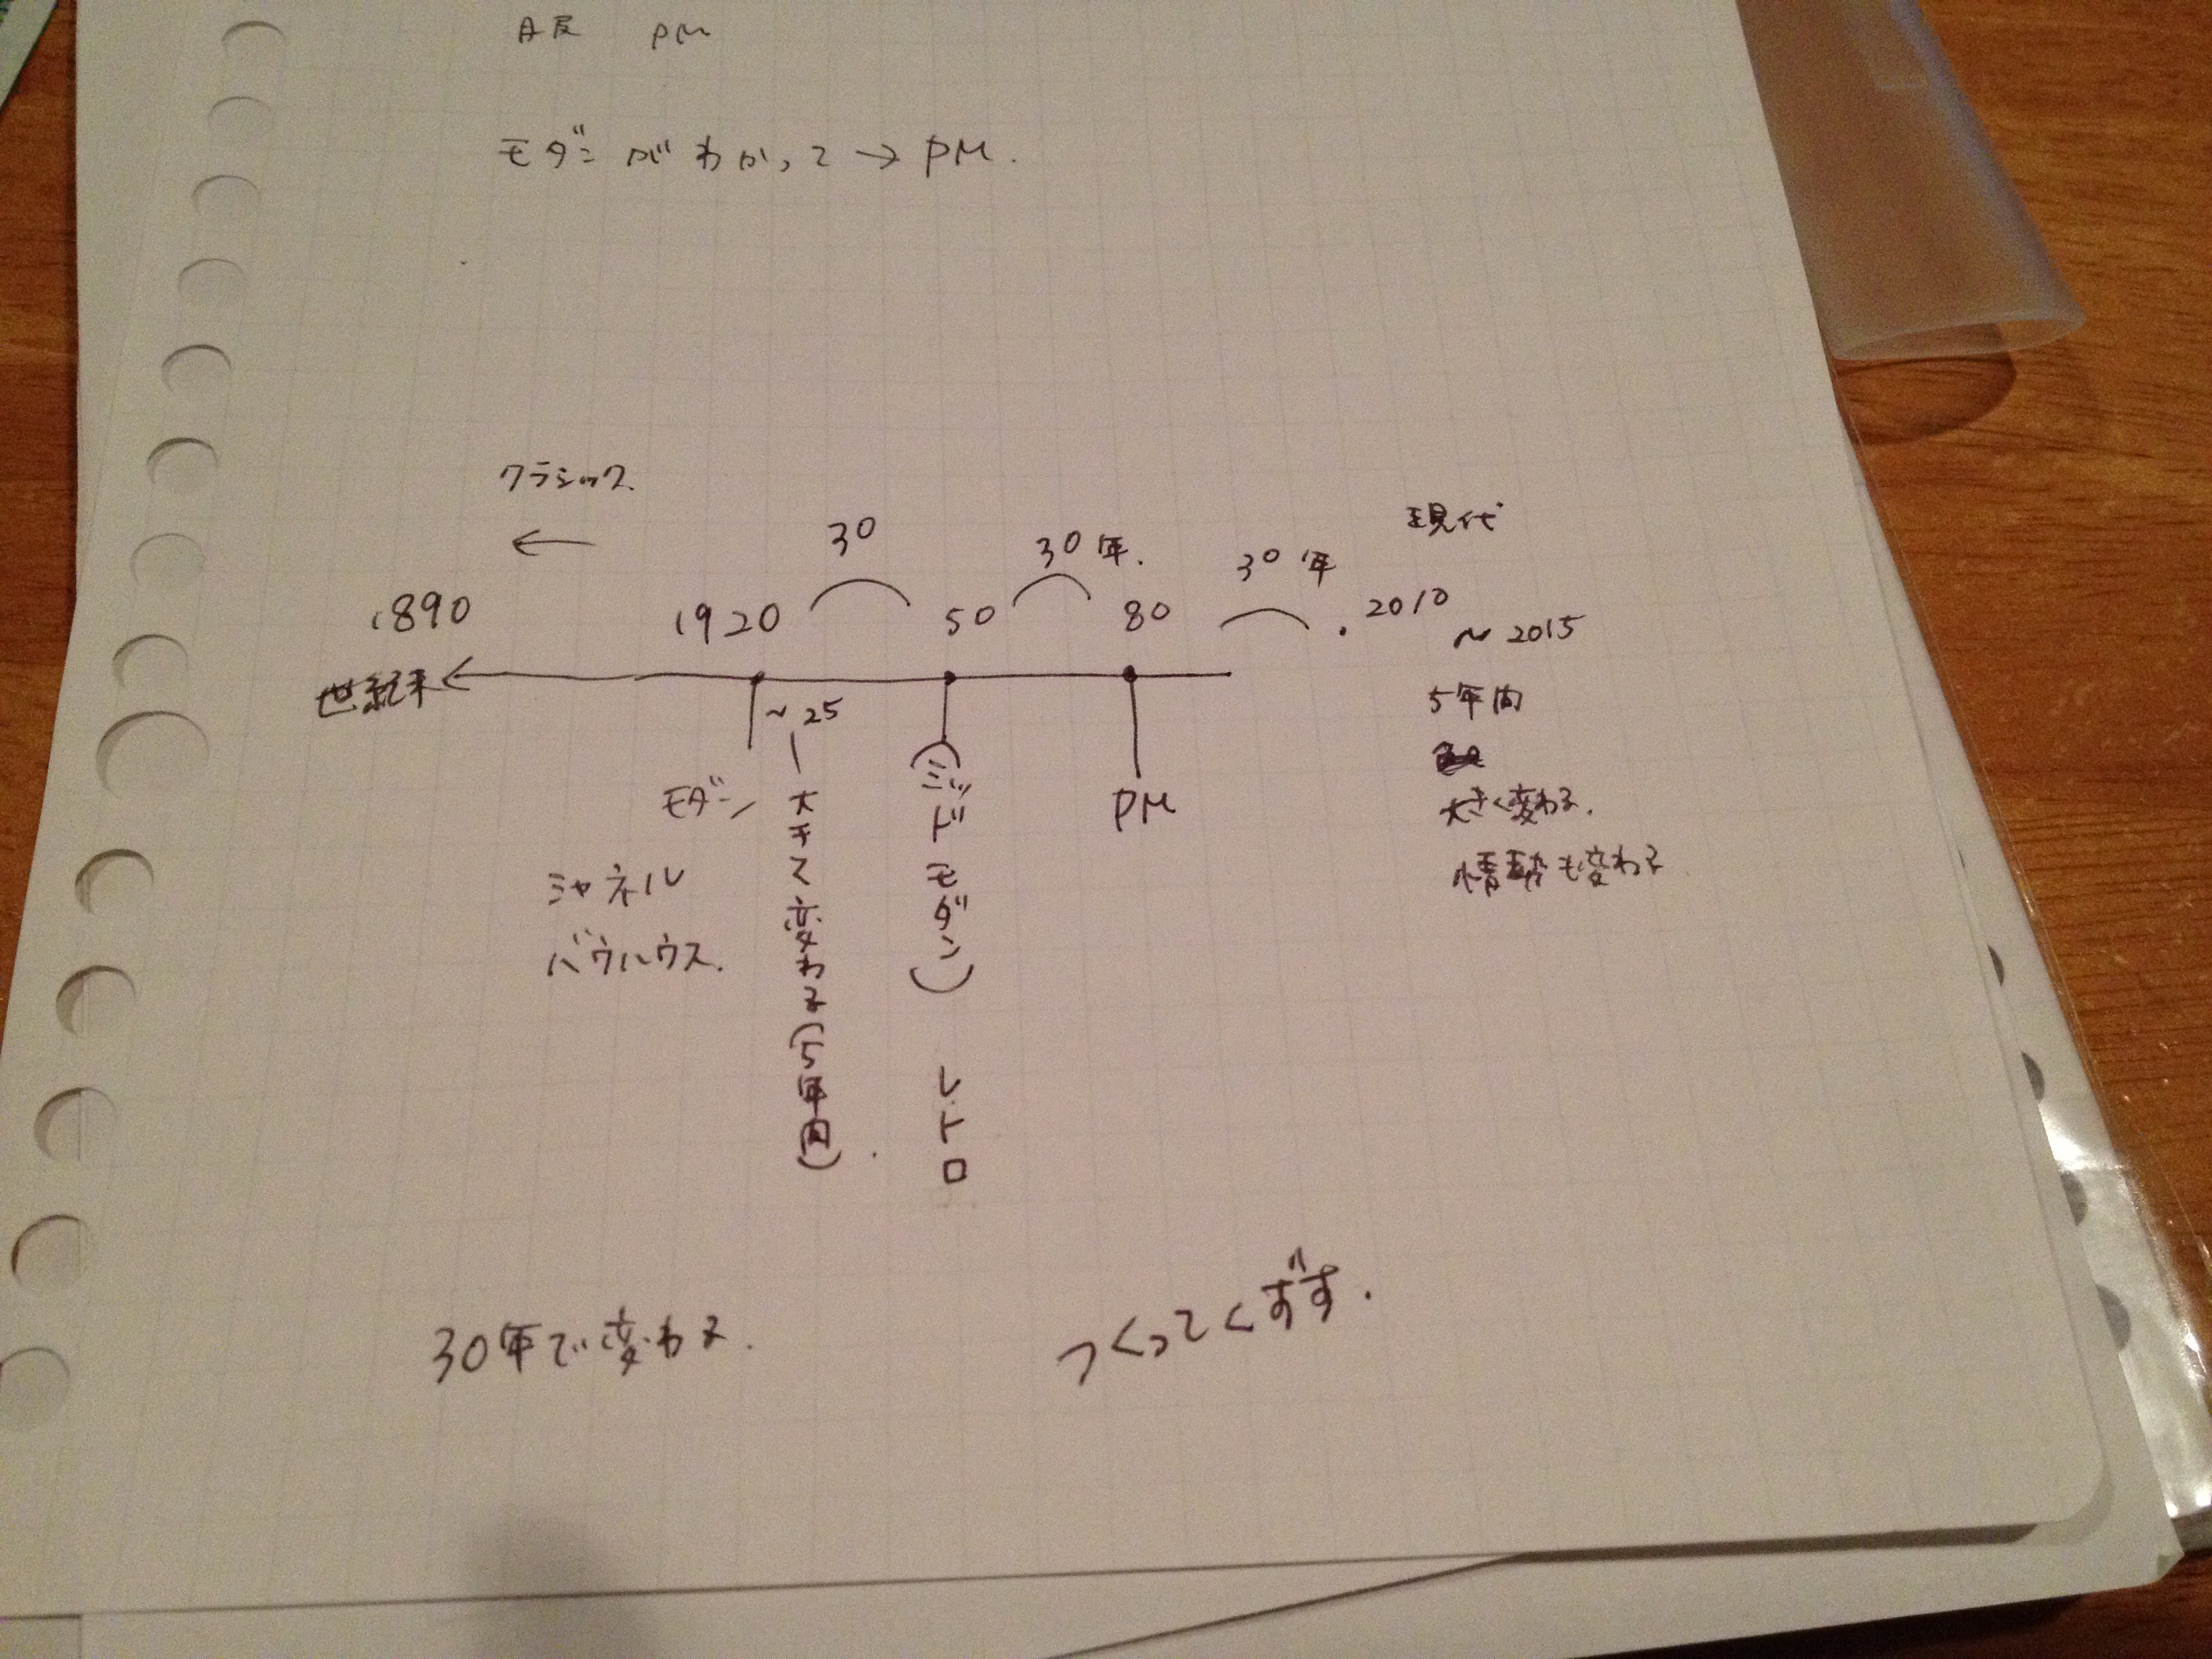 PM
モダンがわかって→PM.
クラシック.
←
30
30年.
30年
現代
1890
1920
50
80
.2010
~2015
世紀末
~25
5年間
モダン
大きく変わる(5年間).
(ミッドモダン)
レトロ
PM
大きく変わる.
情勢も変わる
シャネル
バウハウス.
30年で変わる.
つくってくずす.